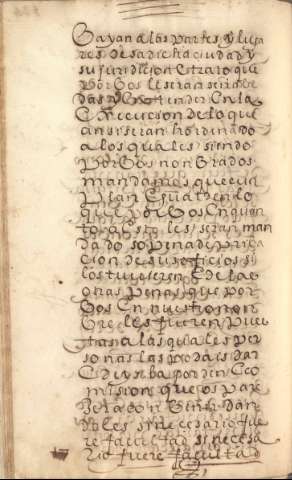 bayan a las partes y luga
res de sa dicha ciudad y
su juridicion e trato que
por bos les seran señala
das y en tender en la
execucion de lo que
ansi seran hordenado
a los quales siendo
por bos nonbrados
mandamos que cun
plan e guarden lo
que por bos en quan
to a esto les sera man
dado so pena de priva
cion de sus oficios si
los tubieren e de las
otras penas que por
bos en nuestro non
bre les fueren pues
tas a las quales per
sonas las podais dar
e deis la borden e co
mision que os pare
zca con benir dan
doles si necesario fue
re facultad si necesa
rio fuere facultad